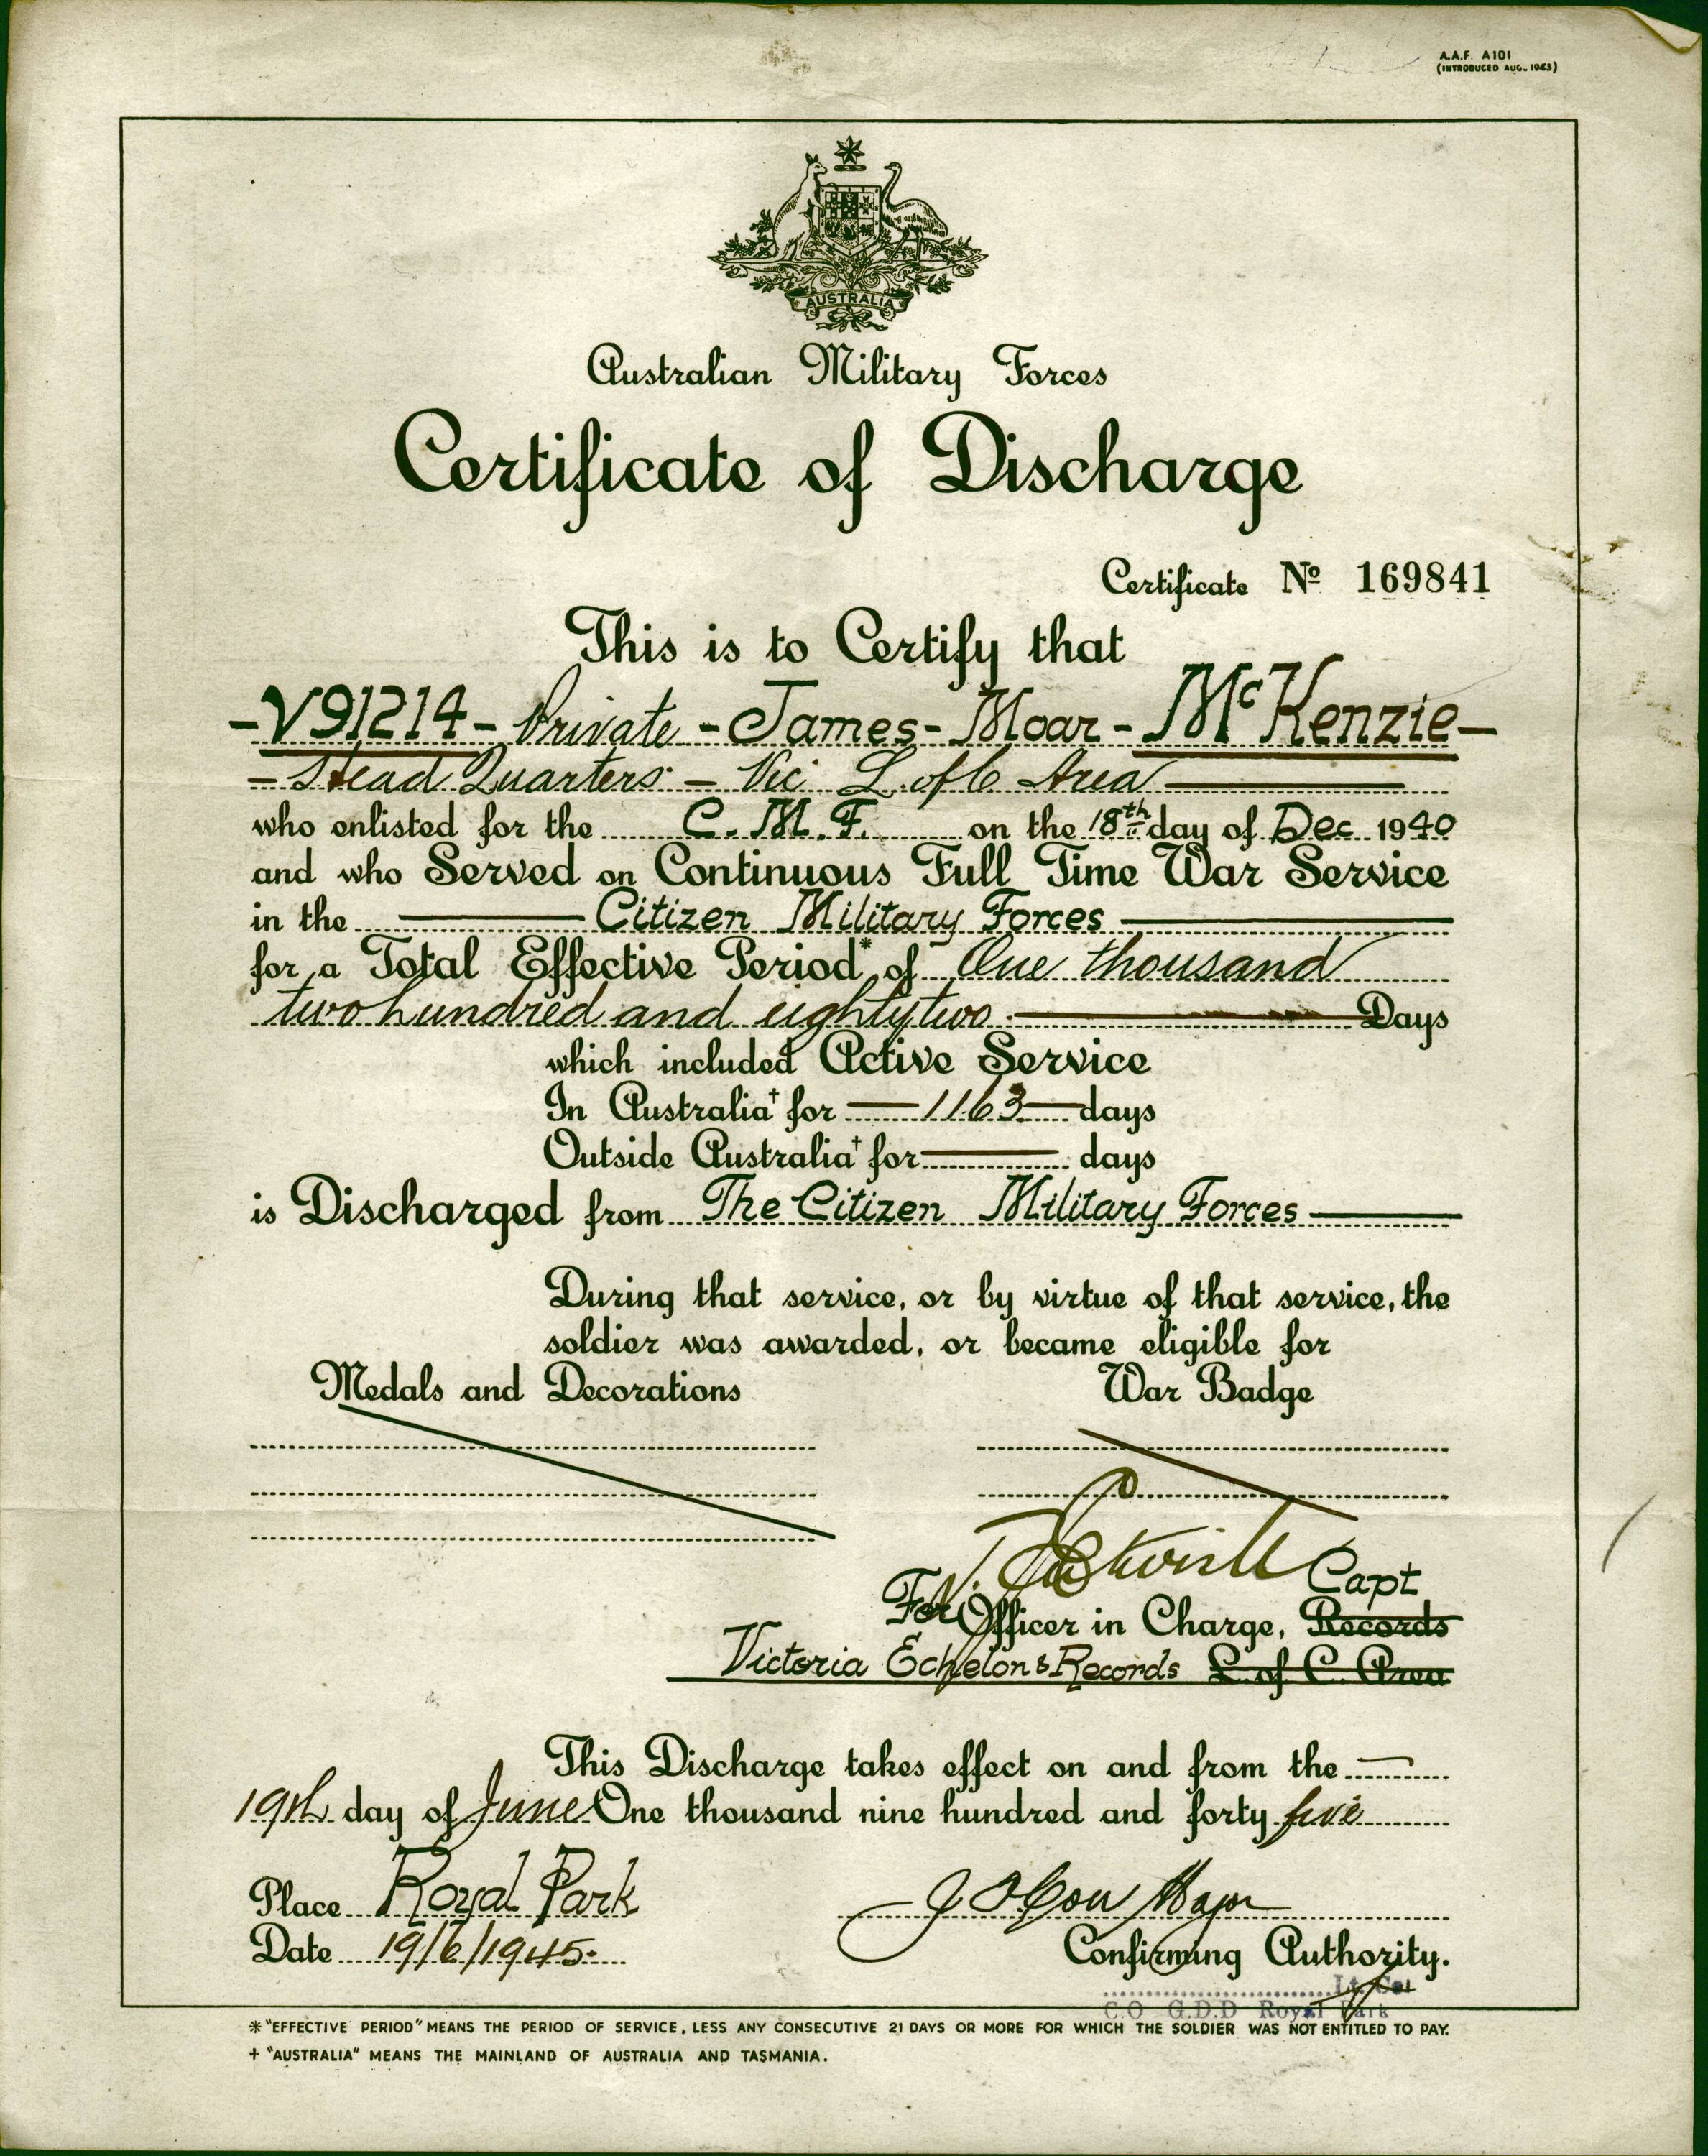 A.A.F. A101
(INTRODUCED AUG. 1943)
AUSTRALIA
Australian Military Forces
Certificate of Discharge
Certificate No 169841
This is to Certify that
- V91214 - Private - James - Moar - McKenzie -
- Head Quarters - Vic L. of C Area
who enlisted for the C. M. F. on the 18th day of Dec 1940
and who Served on Continuous Full Time War Service
in the Citizen Military Forces
for a Total Effective Period* of One thousand
two hundred and eighty two Days
which included Active Service
In Australia† for 1163 days
Outside Australia† for days
is Discharged from The Citizen Military Forces
During that service, or by virtue of that service, the
soldier was awarded, or became eligible for
Medals and Decorations War Badge
Capt
For Officer in Charge, Records
Victoria Echelon & Records L. of C. Area
This Discharge takes effect on and from the
19th day of June One thousand nine hundred and forty five
Place Royal Park Major
Date 19/6/1945. Confirming Authority.
Lt. Col
C.O G.D.D Royal Park
* "EFFECTIVE PERIOD" MEANS THE PERIOD OF SERVICE, LESS ANY CONSECUTIVE 21 DAYS OR MORE FOR WHICH THE SOLDIER WAS NOT ENTITLED TO PAY.
† "AUSTRALIA" MEANS THE MAINLAND OF AUSTRALIA AND TASMANIA.